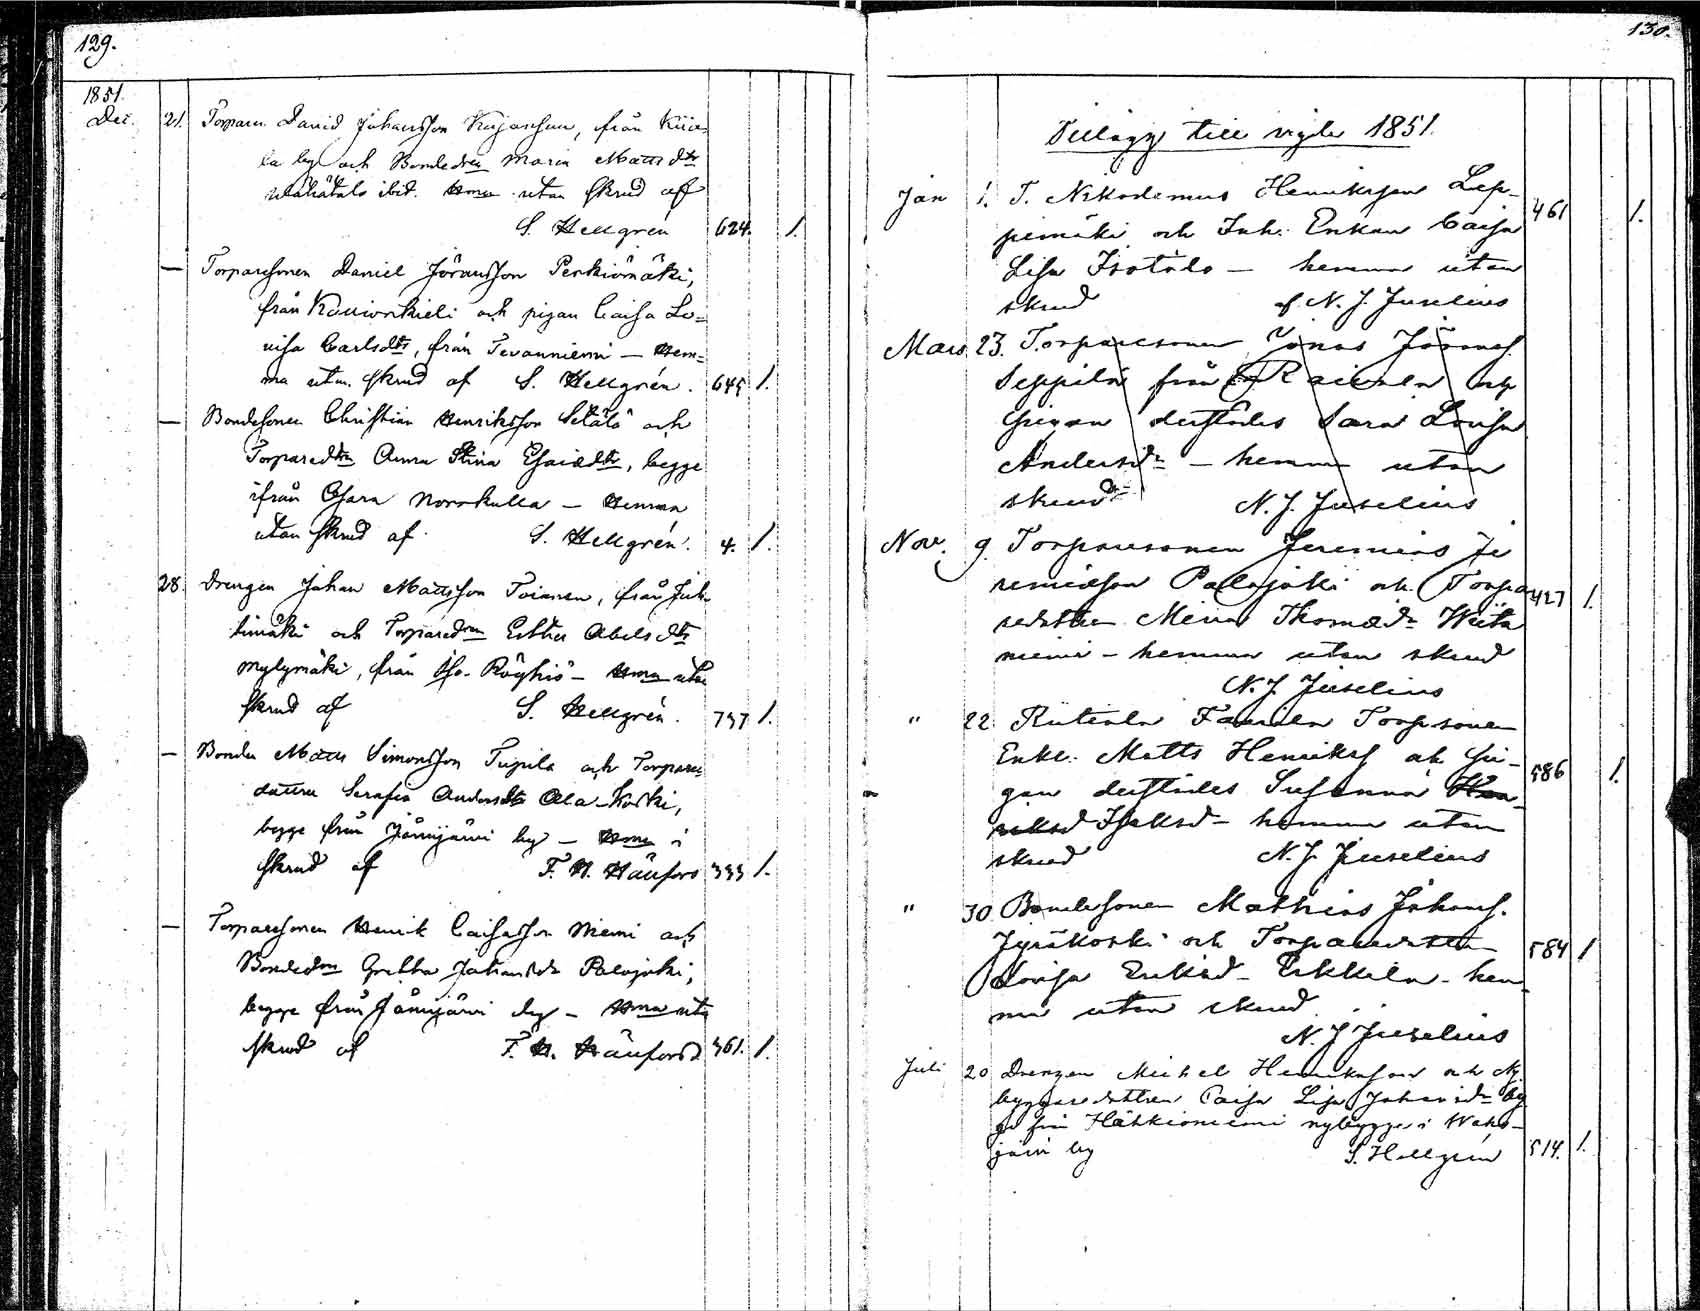 129.
1851.
Dec. 21. Torparen David Johansson Kujansuu, från Kiia-
la by och Bondedrn Maria Mattsdtr
ibid. Hma utan skrud af
S. Hellgrén 624. 1.
— Torparesonen Daniel Jöransson Penkinmäki,
från och pigan Caisa Lo-
visa Carlsdtr, från Tevanniemi — Hem-
ma utan skrud af S. Hellgrén. 645 1.
— Bondesonen Christian Henriksson Setälä och
Torparedtrn Anna Stina Esaiædtr, begge
ifrån Norrkulla — Hemma
utan skrud af S. Hellgrén. 4. 1.
28. Drengen Johan Mattsson Toivonen, från Juh-
timäki och Torparedtrn Esther Abelsdtr
Myllymäki, från Röyhiö — Hma utan
skrud af S. Hellgrén. 737 1.
— Bonden Matts Simonsson Tupila och Torpare
dottren Serafia Andersdtr Ala-Koski,
begge från Jämijärvi by — Hma i
skrud af F. H. Hänfors 333 1.
— Torparesonen Henrik Caisasson Niemi och
Bondedtrn Gretha Johansdtr Palojoki,
begge från Jämijärvi by — Hma utan
skrud af F. H. Hänfors 361. 1.
130.
Tillägg till vigde 1851.
Jan 1. T. Nikodemus Henriksson Lep-
pimäki och Inh. Enkan Caisa 461 1.
Lisa Isotalo — hemma utan
skrud af N. J. Juselius
Mars 23. Torparesonen Jonas Jöranss.
Seppilä från Raivala och
Pigan derstädes Sara Lovisa
Andersdr — hemma utan
skrud N. J. Juselius
Nov. 9. Torparesonen Jeremias Je
remiasson Palojoki och Torpa 427 1.
redottren Miina Thomædr Wiita
niemi — hemma utan skrud
N. J. Juselius
" 22 Torpsonen
Enkl. Matts Henrikss och Pi- 586 1.
gan derstädes Susanna Hen-
riksd Isaksd — hemma utan
skrud N. J. Juselius
" 30 Bondesonen Mathias Johanss.
Jyräkoski och Torparedottren 584 1
Lovisa Eriksd Erkkilä — hem-
ma utan skrud
N. J. Juselius
Juli 20 Drengen Michel Henriksson och Ny-
byggaredottren Caisa Lisa Johansdr beg
ge från Hähkiöniemi nybygge i Waho-
järvi by S. Hellgrén 514. 1.